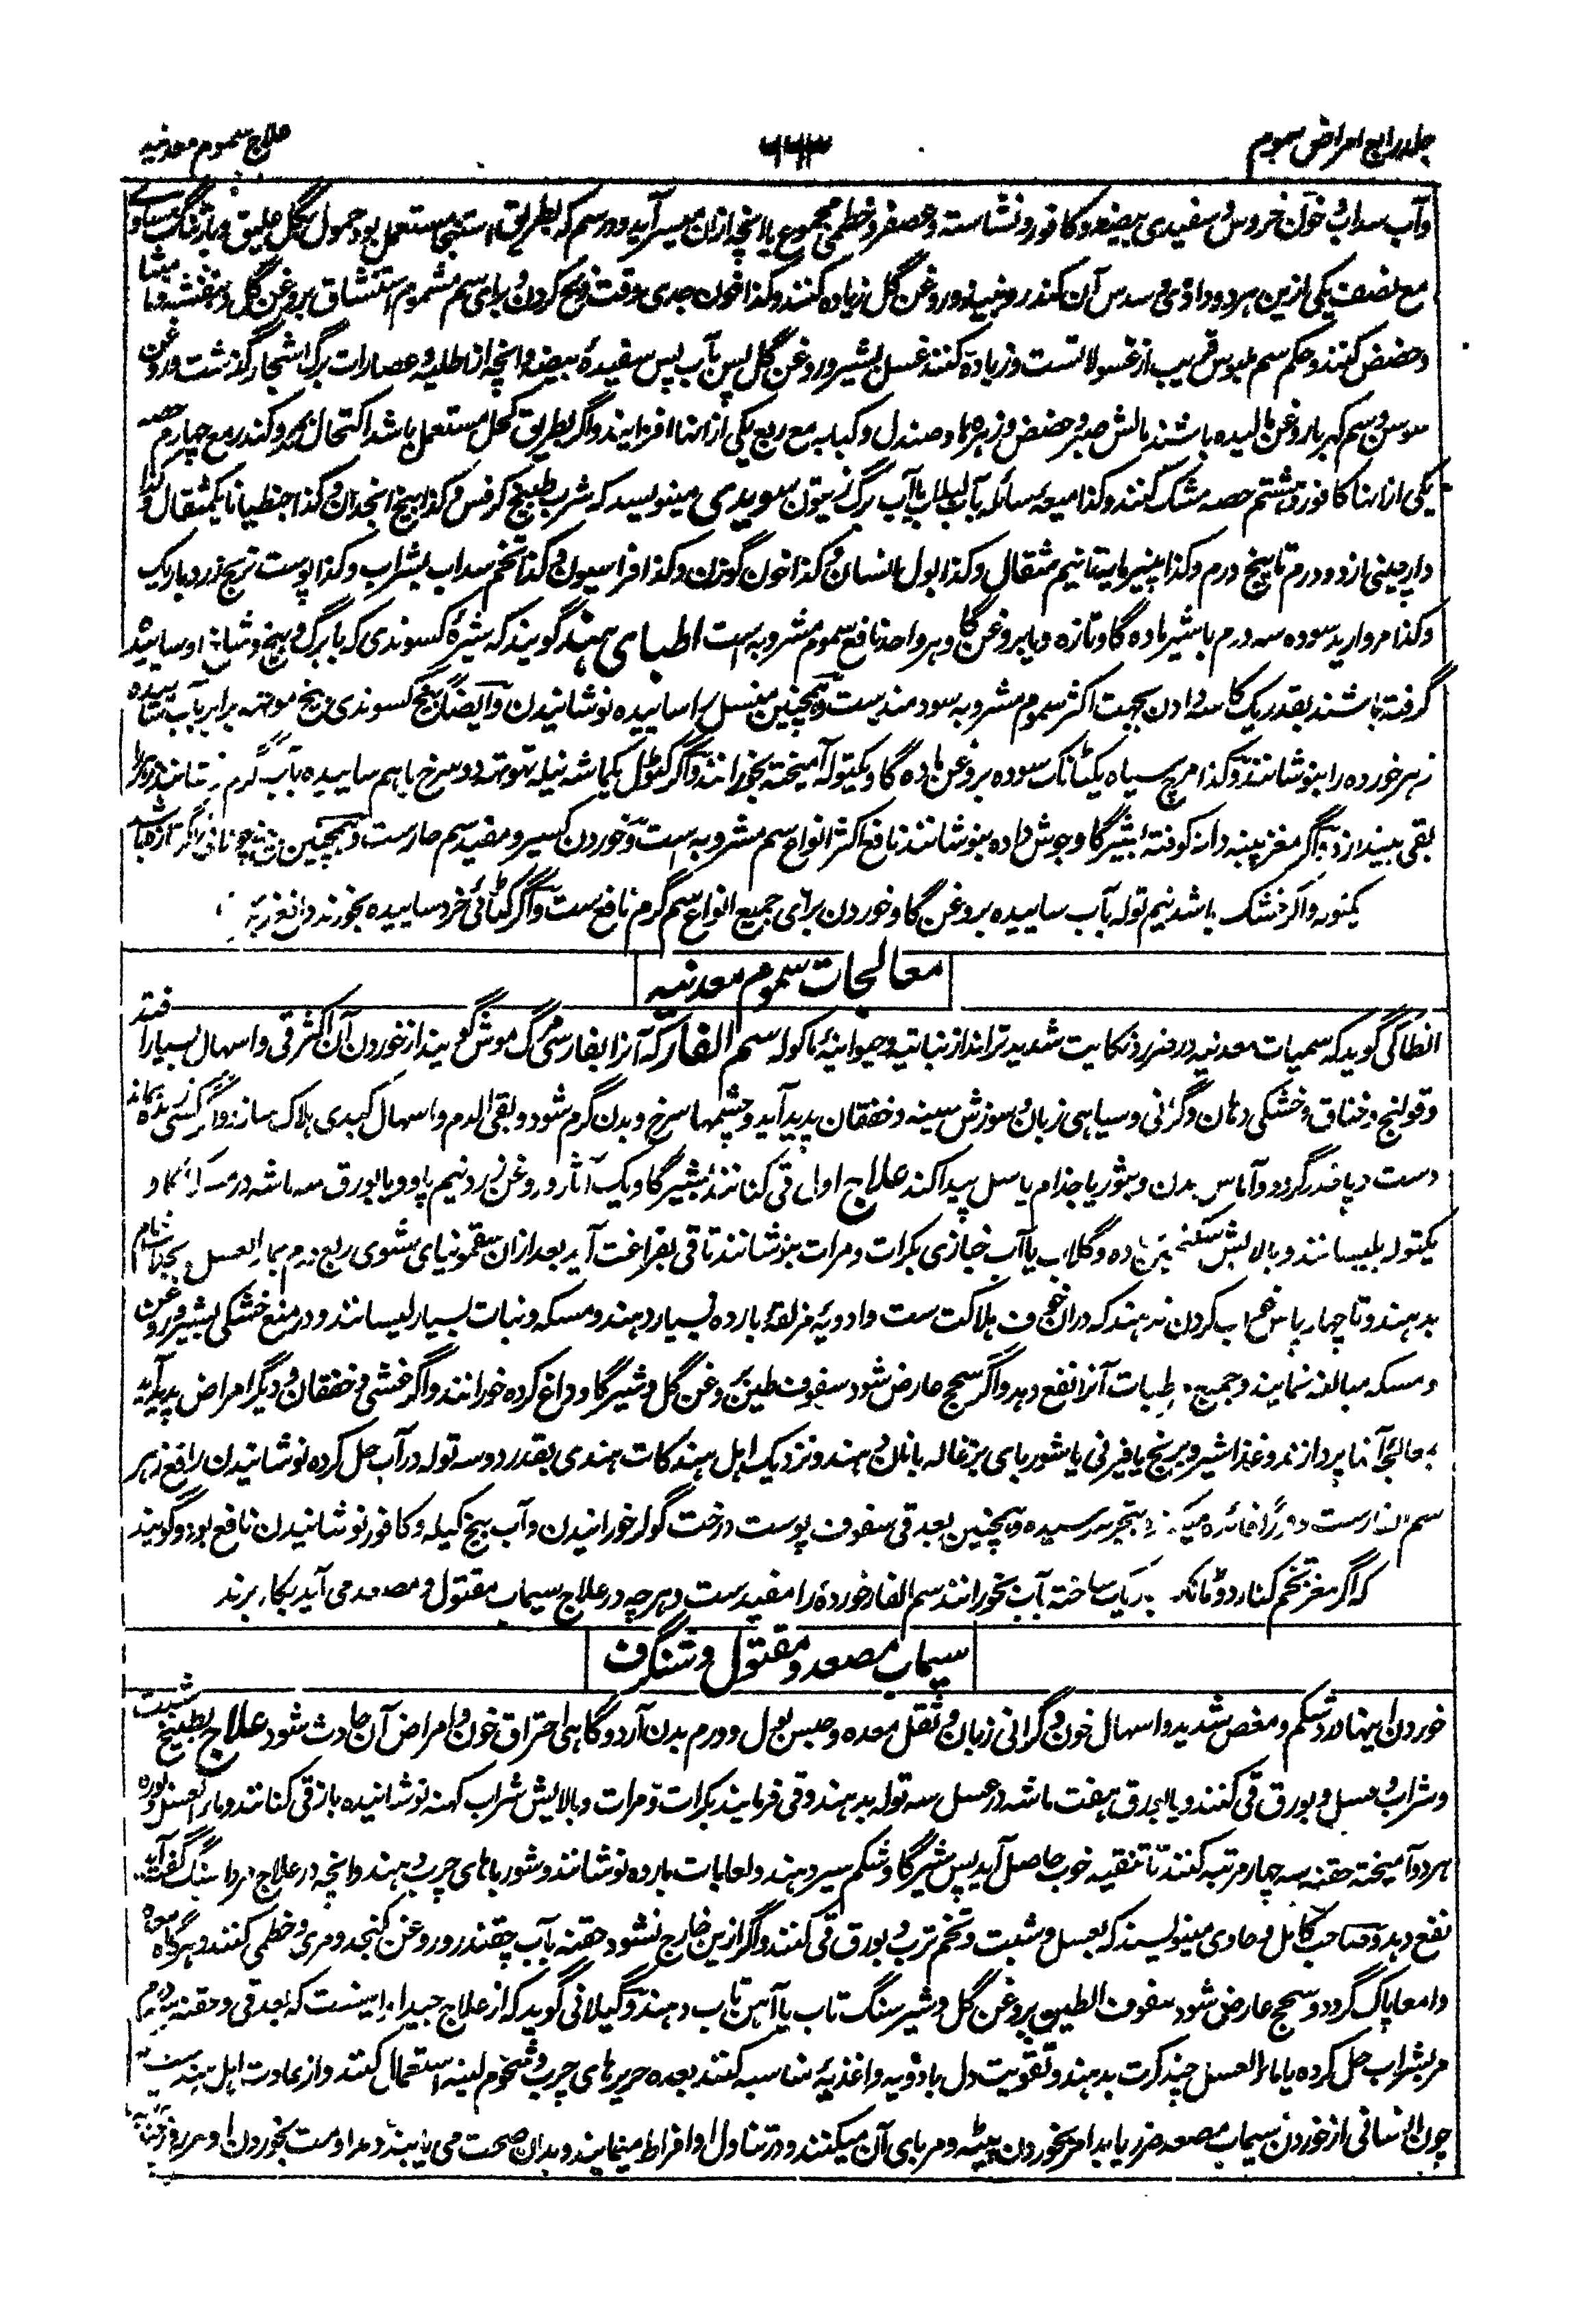 جلد رابع امراض سموم
۶۶۳
علاج سموم معدنیه
وآب سداب و خون خروس و سفیدی بیضه و کافور و نشاسته و عصفر و خطمی مجموع یا انچه ازان میسر آید و در سم که بطریق استنجا مستعمل بود حمول بگل علیق و بارتنگ مساوی
مع نصف یکی ازین هر دو دادقی و سدس آن کندر و بر روغن گل زیاده کنند و کذا خون جدی وقت ذبح کردن و برای سم مشموم استنشاق بروغن گل و بنفشه و مامیثا
و حضض کنند و حکم سم ملبوس قریب از غسولاتست و زیاده کنند غسل بشیر و روغن گل پس بآب پس سفیده بیضه و انچه از اطلیه و عصارات برگ اشجار گذشت و روغن
سوسن و سم که با روغن مالیده باشند مالش صبر و حضض و زهره ماد صندل و کبابه مع ربع یکی ازانها افزایند و اگر بطریق کحل مستعمل باشد اکتحال بصبر و کندر مع چهارم حصه
یکی ازانها کافور و هشتم حصه مشک کنند و کذا میعه سائله بآب لبلاب یا آب برگ زیتون سویدی مینویسد که شرب طبیخ کرفس و کذا بیخ انجدان و کذا جنطیانا یکمثقال و کذا
دارچینی از دو درم تا پنج درم و کذا پنیر مایه تا نیم مثقال و کذا بول انسان و کذا خون گوزن و کذا فراسیون و کذا تخم سداب بشراب و کذا پوست ترنج زرد باریک
و کذا مروارید سوده سه درم با شیر ماده گاو تازه و یا بروغن گاو هر واحد نافع سموم مشروبه است اطبای هند گویند که شیره کسوندی که با برگ و بیخ و شاخ او سائیده
گرفته باشند بقدر یک کاسه دادن بجهت اکثر سموم مشروبه سودمندست و همچنین مینسل را سائیده نوشانیدن و ایضا بیخ کسوندی و بیخ موتهه برابر بآب سائیده
زهر خورده را بنوشانند و کذا مرچ سیاه یکتانک سوده بروغن ماده گاو یکتوله آمیخته بخورانند و اگر کٹول یکماشه نیله تهوتهه دو سرخ باهم سائیده بآب گرم نوشانند زهر را
بقی بیندازد و اگر مغز پنبه دانه کوفته بشیر گاو جوش داده بنوشانند نافع اکثر انواع سم مشروبه است و خوردن کسیرو مفید سم حارست و همچنین اگر تازه باشد
یکتوله و اگر خشک باشد نیم توله بآب سائیده بروغن گاو خوردن برای جمیع انواع سم گرم نافع ست و اگر کٹائی خرد سائیده بخورند دافع زهر
معالجات سموم معدنیه
انطاکی گوید که سمیات معدنیه در ضرر و نکایت شدیدتر اند از نباتیه و حیوانیه ماکوله سم الفار که آنرا بفارسی مرگ موش گویند از خوردن آن اکثر قی و اسهال بسیار افتد
و قولنج و خناق و خشکی دهان و گرانی و سیاهی زبان و سوزش سینه و خفقان پدید آید و چشمها سرخ و بدن گرم شود و بقی الدم و اسهال کبدی هلاک سازد و اگر کسی زنده بماند
دست و پا خدر گردد و آماس بدن و بثور یا جذام یا سل پیدا کند علاج اول قی کنانند بشیر گاو یک آثار و روغن زرد نیم پاو و یا بورق سه ماشه در مسکه گاو
یکتوله بلیسانند و بالایش سکنجبین ساده و گلاب یا آب خبازی بکرات و مرات بنوشانند تا قی بفراغت آید بعد ازان سقمونیای مشوی ربع درم بماء العسل و بجلاب شام
بدهند و تا چهار پاس خواب کردن ندهند که دران خوف هلاکت ست و ادویه مزلقه بارده بسیار دهند و مسکه و نبات بسیار لیسانند و در منع خشکی بشیر و روغن
و مسکه مبالغه نمایند و جمیع مرطبات آنرا نفع دهد و اگر سحج عارض شود سفوف طین بروغن گل و شیر گاو داغ کرده خورانند و اگر غشی و خفقان و دیگر امراض پدید آید
بمعالجه آنها پردازند و غذا شیر و برنج یا فیرنی یا شوربای بزغاله با نان دهند و نزدیک اهل هند کات هندی بقدر دو سه توله در آب حل کرده نوشانیدن رافع زهر
سم الفارست و بتجربه رسیده و همچنین بعد قی سفوف پوست درخت گولر خورانیدن و آب بیخ کیله و کافور نوشانیدن نافع بود و گویند
که اگر مغز تخم کنار دو ٹانک باریک ساخته بآب بخورانند سم الفار خورده را مفیدست و هر چه در علاج سیماب مقتول و مصعد می آید بکار برند
سیماب مصعد و مقتول و شنگرف
خوردن اینها درد شکم و مغص شدید و اسهال خون و گرانی زبان و ثقل معده و حبس بول و ورم بدن آرد و گاهی احتراق خون و امراض آن حادث شود علاج بطبیخ شبت
و شراب و عسل و بورق قی کنند و یا بورق هفت ماشه در عسل سه توله بدهند و قی فرمایند بکرات و مرات و بالایش شراب کهنه نوشانیده باز قی کنانند و ماء العسل و بوره
هر دو آمیخته حقنه سه چهار مرتبه کنند تا تنقیه خوب حاصل آید پس شیر گاو شکم سیر دهند و لعابات بارده نوشانند و شورباهای چرب دهند و انچه در علاج مرداسنگ گفته آید
نفع دهد و صاحب کامل و حاوی مینویسند که بعسل و شبت و تخم ترب و بورق قی کنند و اگر ازین خارج نشود حقنه بآب چقندر و روغن کنجد و مری و خطمی کنند و هرگاه معده
و امعا پاک گردد و سحج عارض شود سفوف الطین بروغن گل و شیر سنگ تاب یا آهن تاب دهند و گیلانی گوید که از علاج جید او اینست که بعد قی و حقنه سه درم
مر بشراب حل کرده یا ماء العسل چند کرت بدهند و تقویت دل بادویه و اغذیه مناسبه کنند بعده حریرهای چرب و شحوم لینه استعمال کنند و از عادت اهل هندست
چون انسانی از خوردن سیماب مصعد ضرر یابد امر بخوردن پیٹهه و مربای آن میکنند و در تناول او افراط مینمایند و بدان صحت می یابند و مداومت بخوردن او هر روز